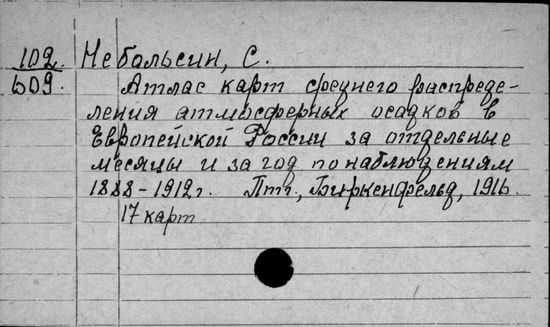 102 Небольсин, С.
609. Атлас карт среднего распреде-
ления атмосферных осадков в
Европейской России за отдельные
месяцы и за год по наблюдениям
1888-1912г. Птг., Биркенфельд, 1916.
17 карт